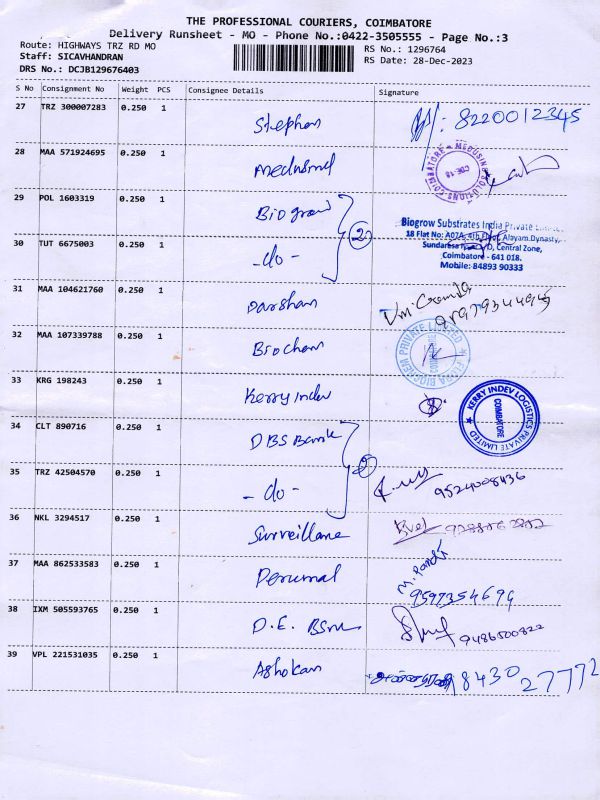 THE PROFESSIONAL COURIERS, COIMBATORE
Delivery Runsheet - MO - Phone No.:0422-3505555 - Page No.:3
Route: HIGHWAYS TRZ RD MO
RS No.: 1296764
Staff: SICAVHANDRAN
RS Date: 28-Dec-2023
DRS No.: DCJB129676403
S No Consignment No Weight PCS Consignee Details Signature
27 TRZ 300007283 0.250 1 Stephen 8220012345
28 MAA 571924695 0.250 1 COIMBATORE
29 POL 1603319 0.250 1 Biogrow
Biogrow Substrates India Private
18 Flat No: A07A, 4th Floor, Alayam.Dynasty,
30 TUT 6675003 0.250 1 -do- 2
Central Zone,
Coimbatore - 641 018.
Mobile: 84893 90333
31 MAA 104621760 0.250 1 Darshan
32 MAA 107339788 0.250 1 Biochem FLORA BIOCHEM PRIVATE LIMITED
33 KRG 198243 0.250 1 Kerry Indev KERRY INDEV LOGISTICS PRIVATE LIMITED COIMBATORE
34 CLT 890716 0.250 1 DBS Bank
35 TRZ 42504570 0.250 1 -do- 9524008436
36 NKL 3294517 0.250 1 Surveillane
37 MAA 862533583 0.250 1 Perumal M. Pandi 9597354694
38 IXM 505593765 0.250 1 D.E. 9486500822
39 VPL 221531035 0.250 1 Ashokan 98430 27772